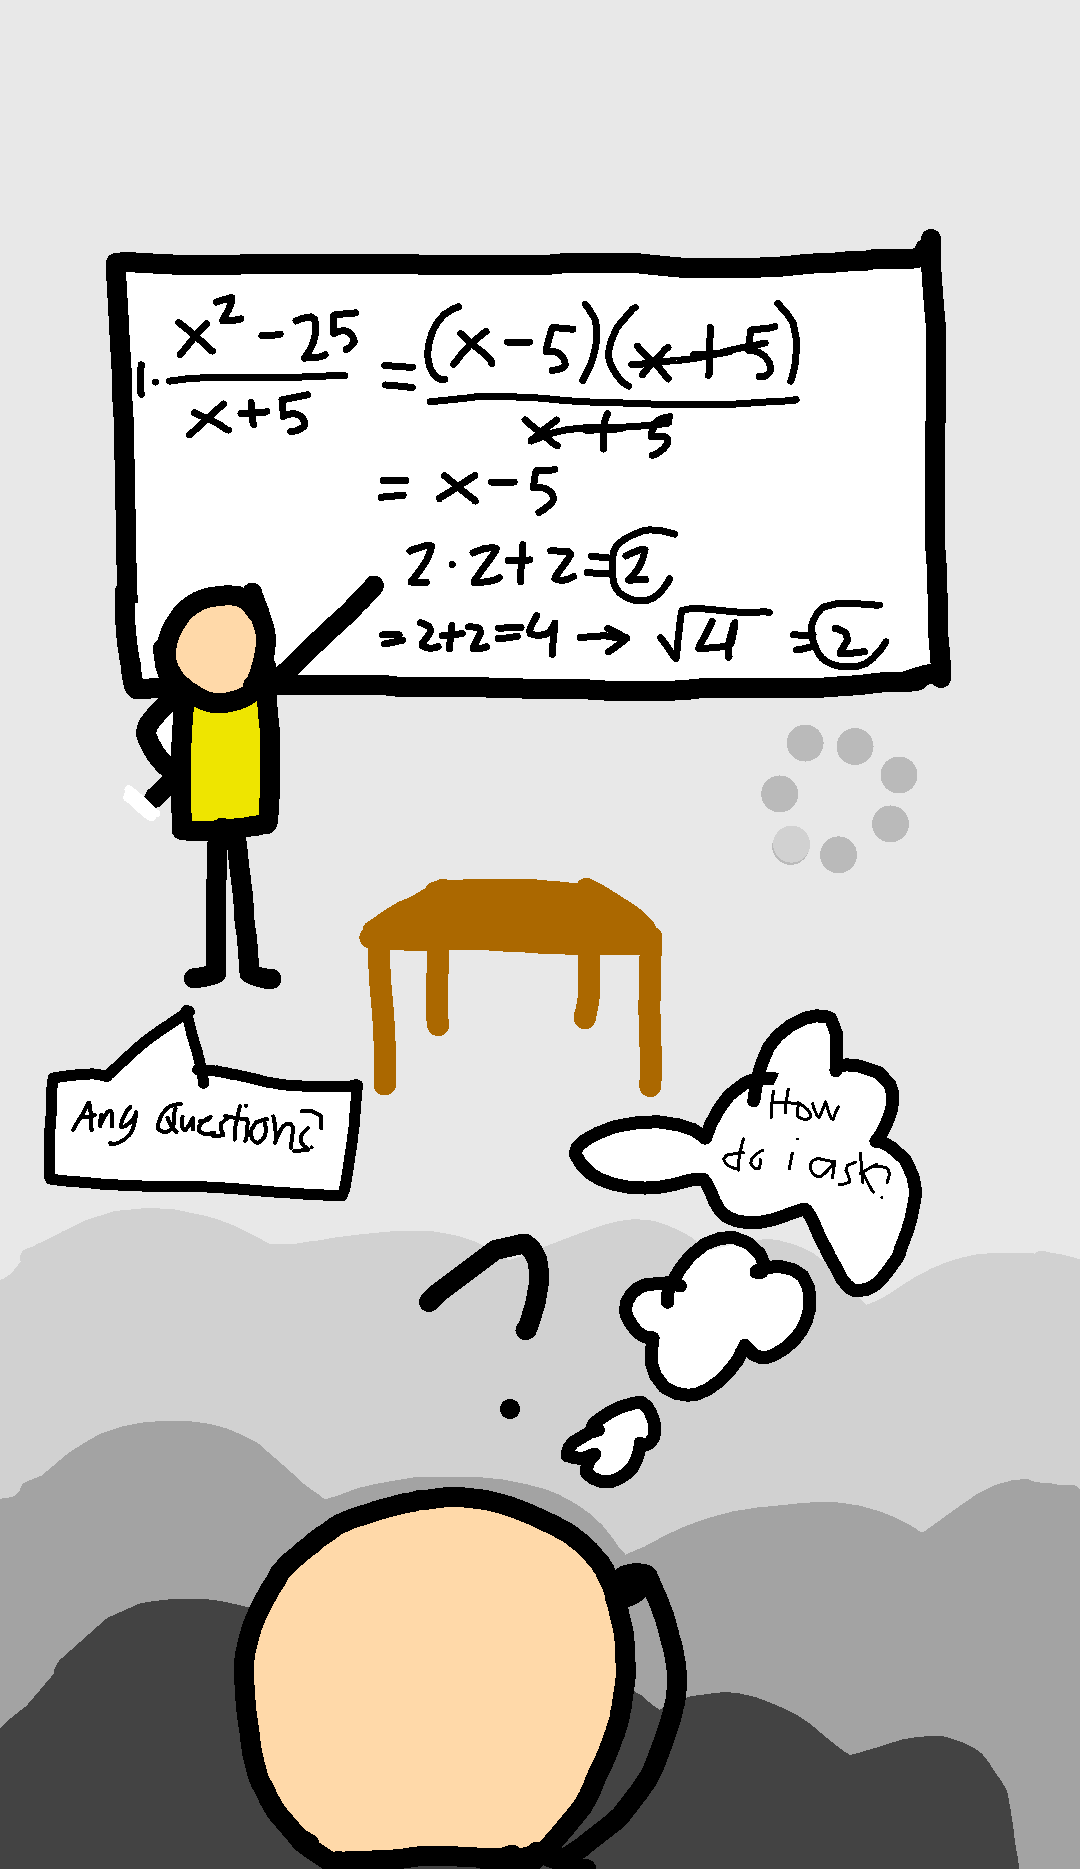 1. x² - 25 / x + 5 = (x - 5)(x + 5) / x + 5
= x - 5
2 · 2 + 2 = 2
= 2+2=4 → √4 = 2
Any Questions?
How
do i ask?
?